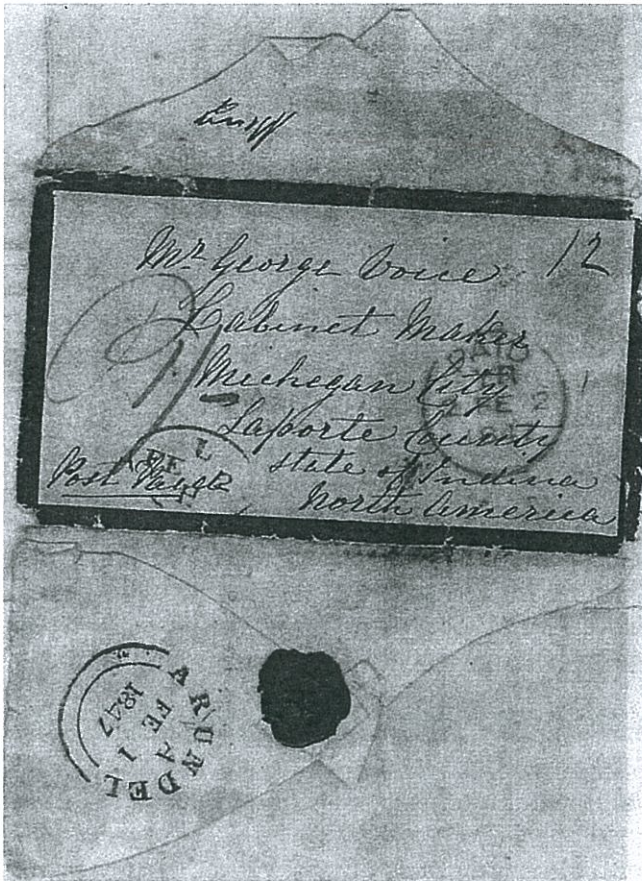 Mr George Voice
12
Cabinet Maker
Michegan City
Laporte County
State of Indiena
North America
Post Paid
PAID
2 FE 2
ARUNDEL
FE 1
A
1847